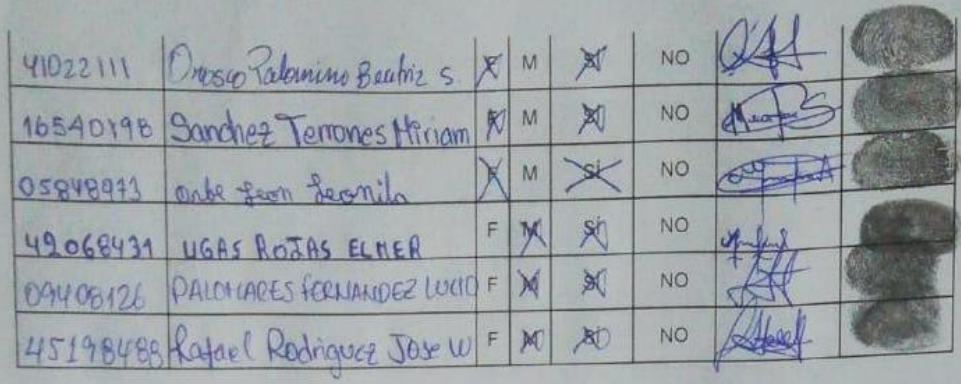 41022111 Orosco Palomino Beatriz S. F M SI NO
16540198 Sanchez Terrones Miriam F M SI NO
05848973 Leon Leonila F M SI NO
42068431 UGAS ROJAS ELMER F M SI NO
09408126 PALOMARES FERNANDEZ LUCIO F M SI NO
45198488 Rafael Rodriguez Jose W F M SI NO